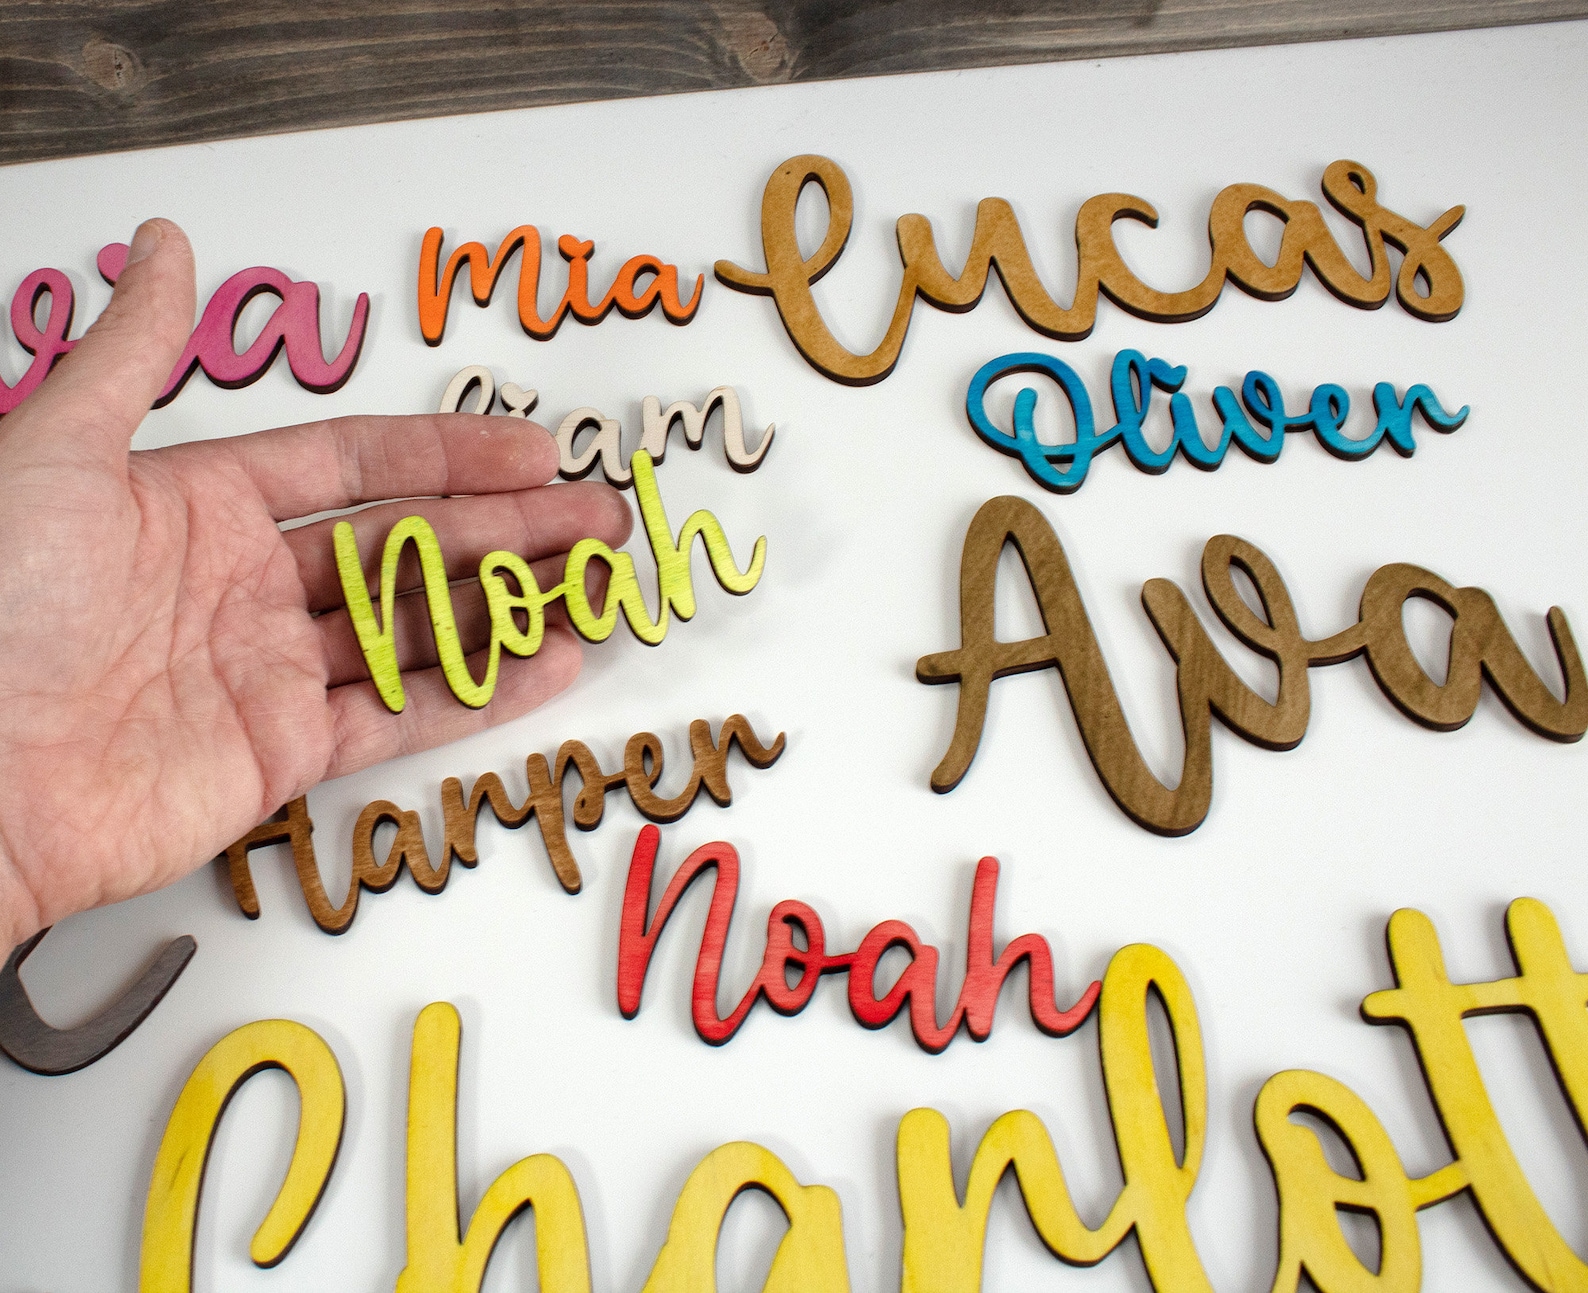 via
Mia
lucas
liam
Oliver
Noah
Ava
Harper
Noah
Charlott